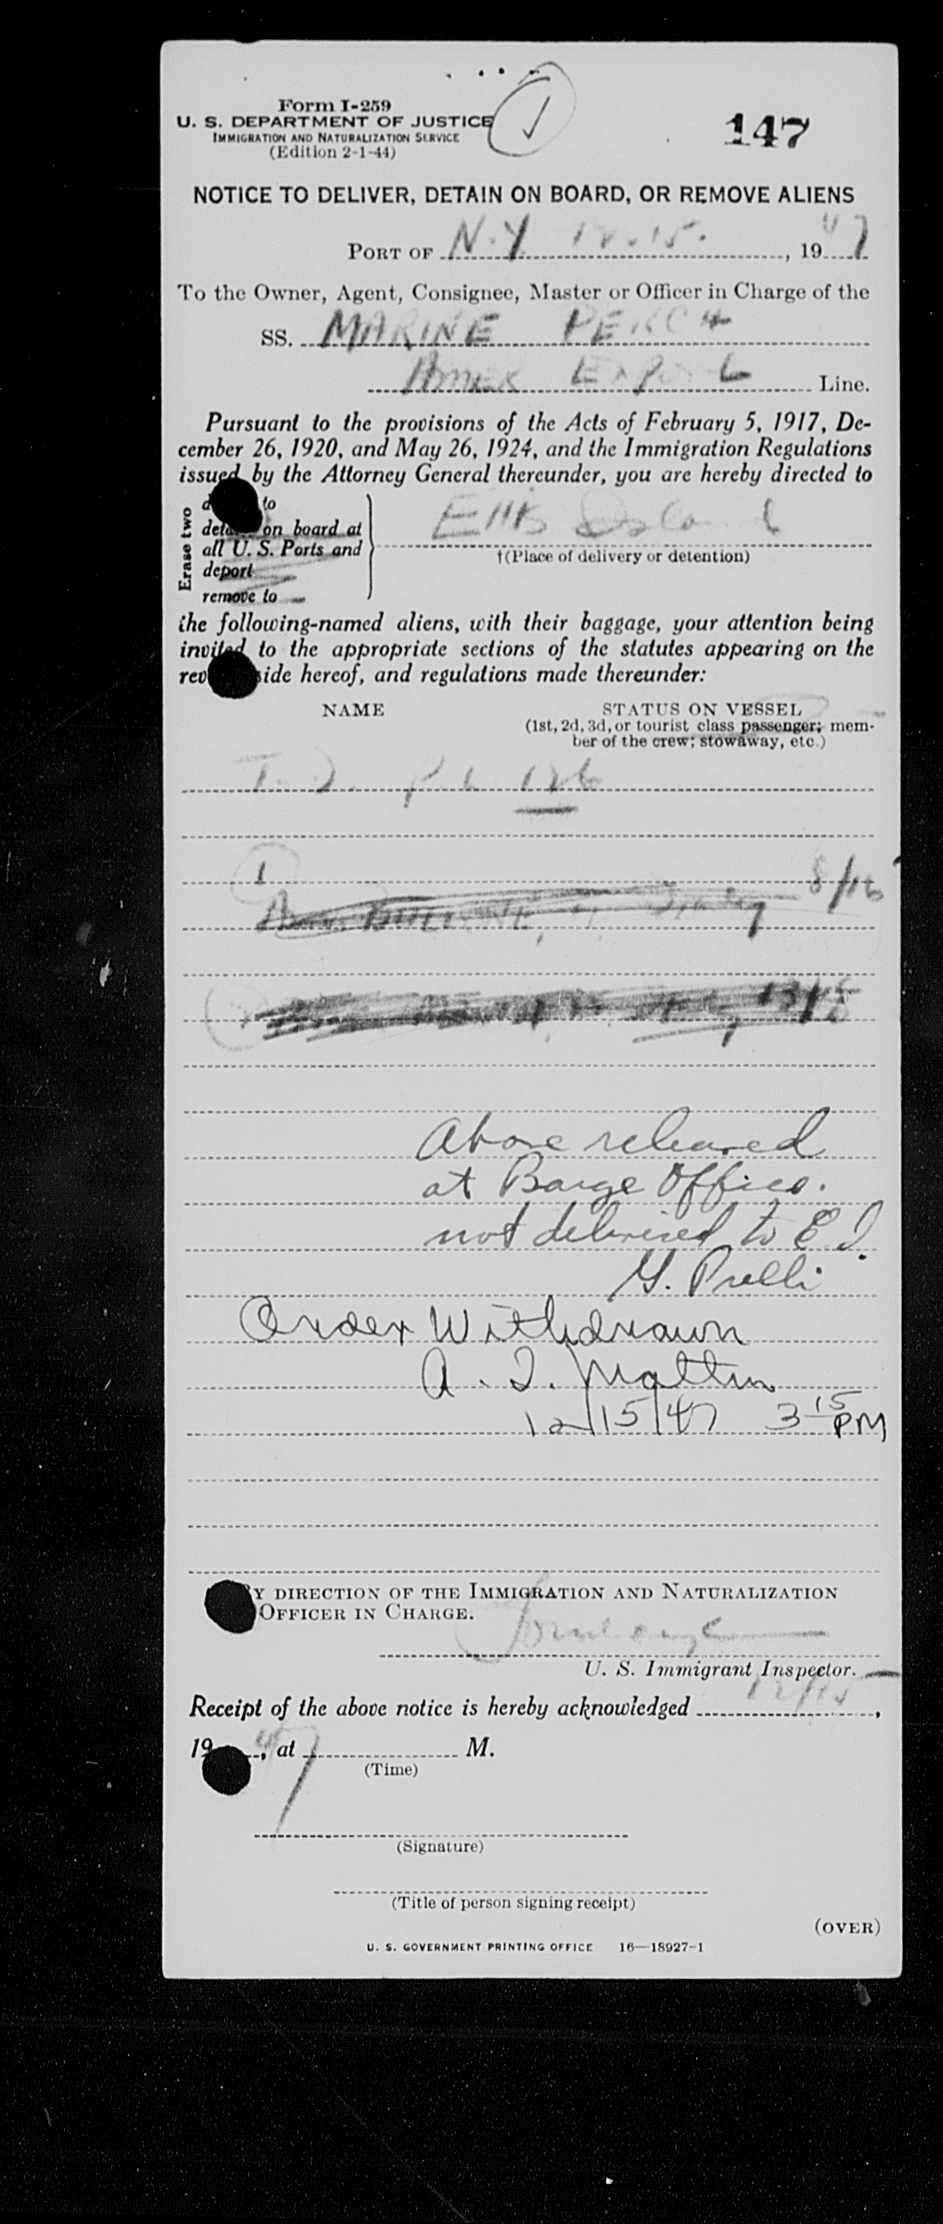 Form I-259
U. S. DEPARTMENT OF JUSTICE
IMMIGRATION AND NATURALIZATION SERVICE
(Edition 2-1-44)
147
NOTICE TO DELIVER, DETAIN ON BOARD, OR REMOVE ALIENS
PORT OF N.Y. 12.15. , 1947
To the Owner, Agent, Consignee, Master or Officer in Charge of the
SS. MARINE PERCH
Amer Export Line.
Pursuant to the provisions of the Acts of February 5, 1917, De-
cember 26, 1920, and May 26, 1924, and the Immigration Regulations
issued by the Attorney General thereunder, you are hereby directed to
Erase two
to
on board at
all U. S. Ports and
deport
remove to
Ellis Island
†(Place of delivery or detention)
the following-named aliens, with their baggage, your attention being
invited to the appropriate sections of the statutes appearing on the
side hereof, and regulations made thereunder:
NAME
STATUS ON VESSEL
(1st, 2d, 3d, or tourist class passenger; mem-
ber of the crew; stowaway, etc.)
126
1
8/16
Above released
at Barge Office.
not delivered to E. I.
Order Withdrawn
12/15/47 3 15 PM
BY DIRECTION OF THE IMMIGRATION AND NATURALIZATION
OFFICER IN CHARGE.
U. S. Immigrant Inspector.
Receipt of the above notice is hereby acknowledged 12/15,
1947, at M.
(Time)
(Signature)
(Title of person signing receipt)
(OVER)
U. S. GOVERNMENT PRINTING OFFICE 16—18927-1